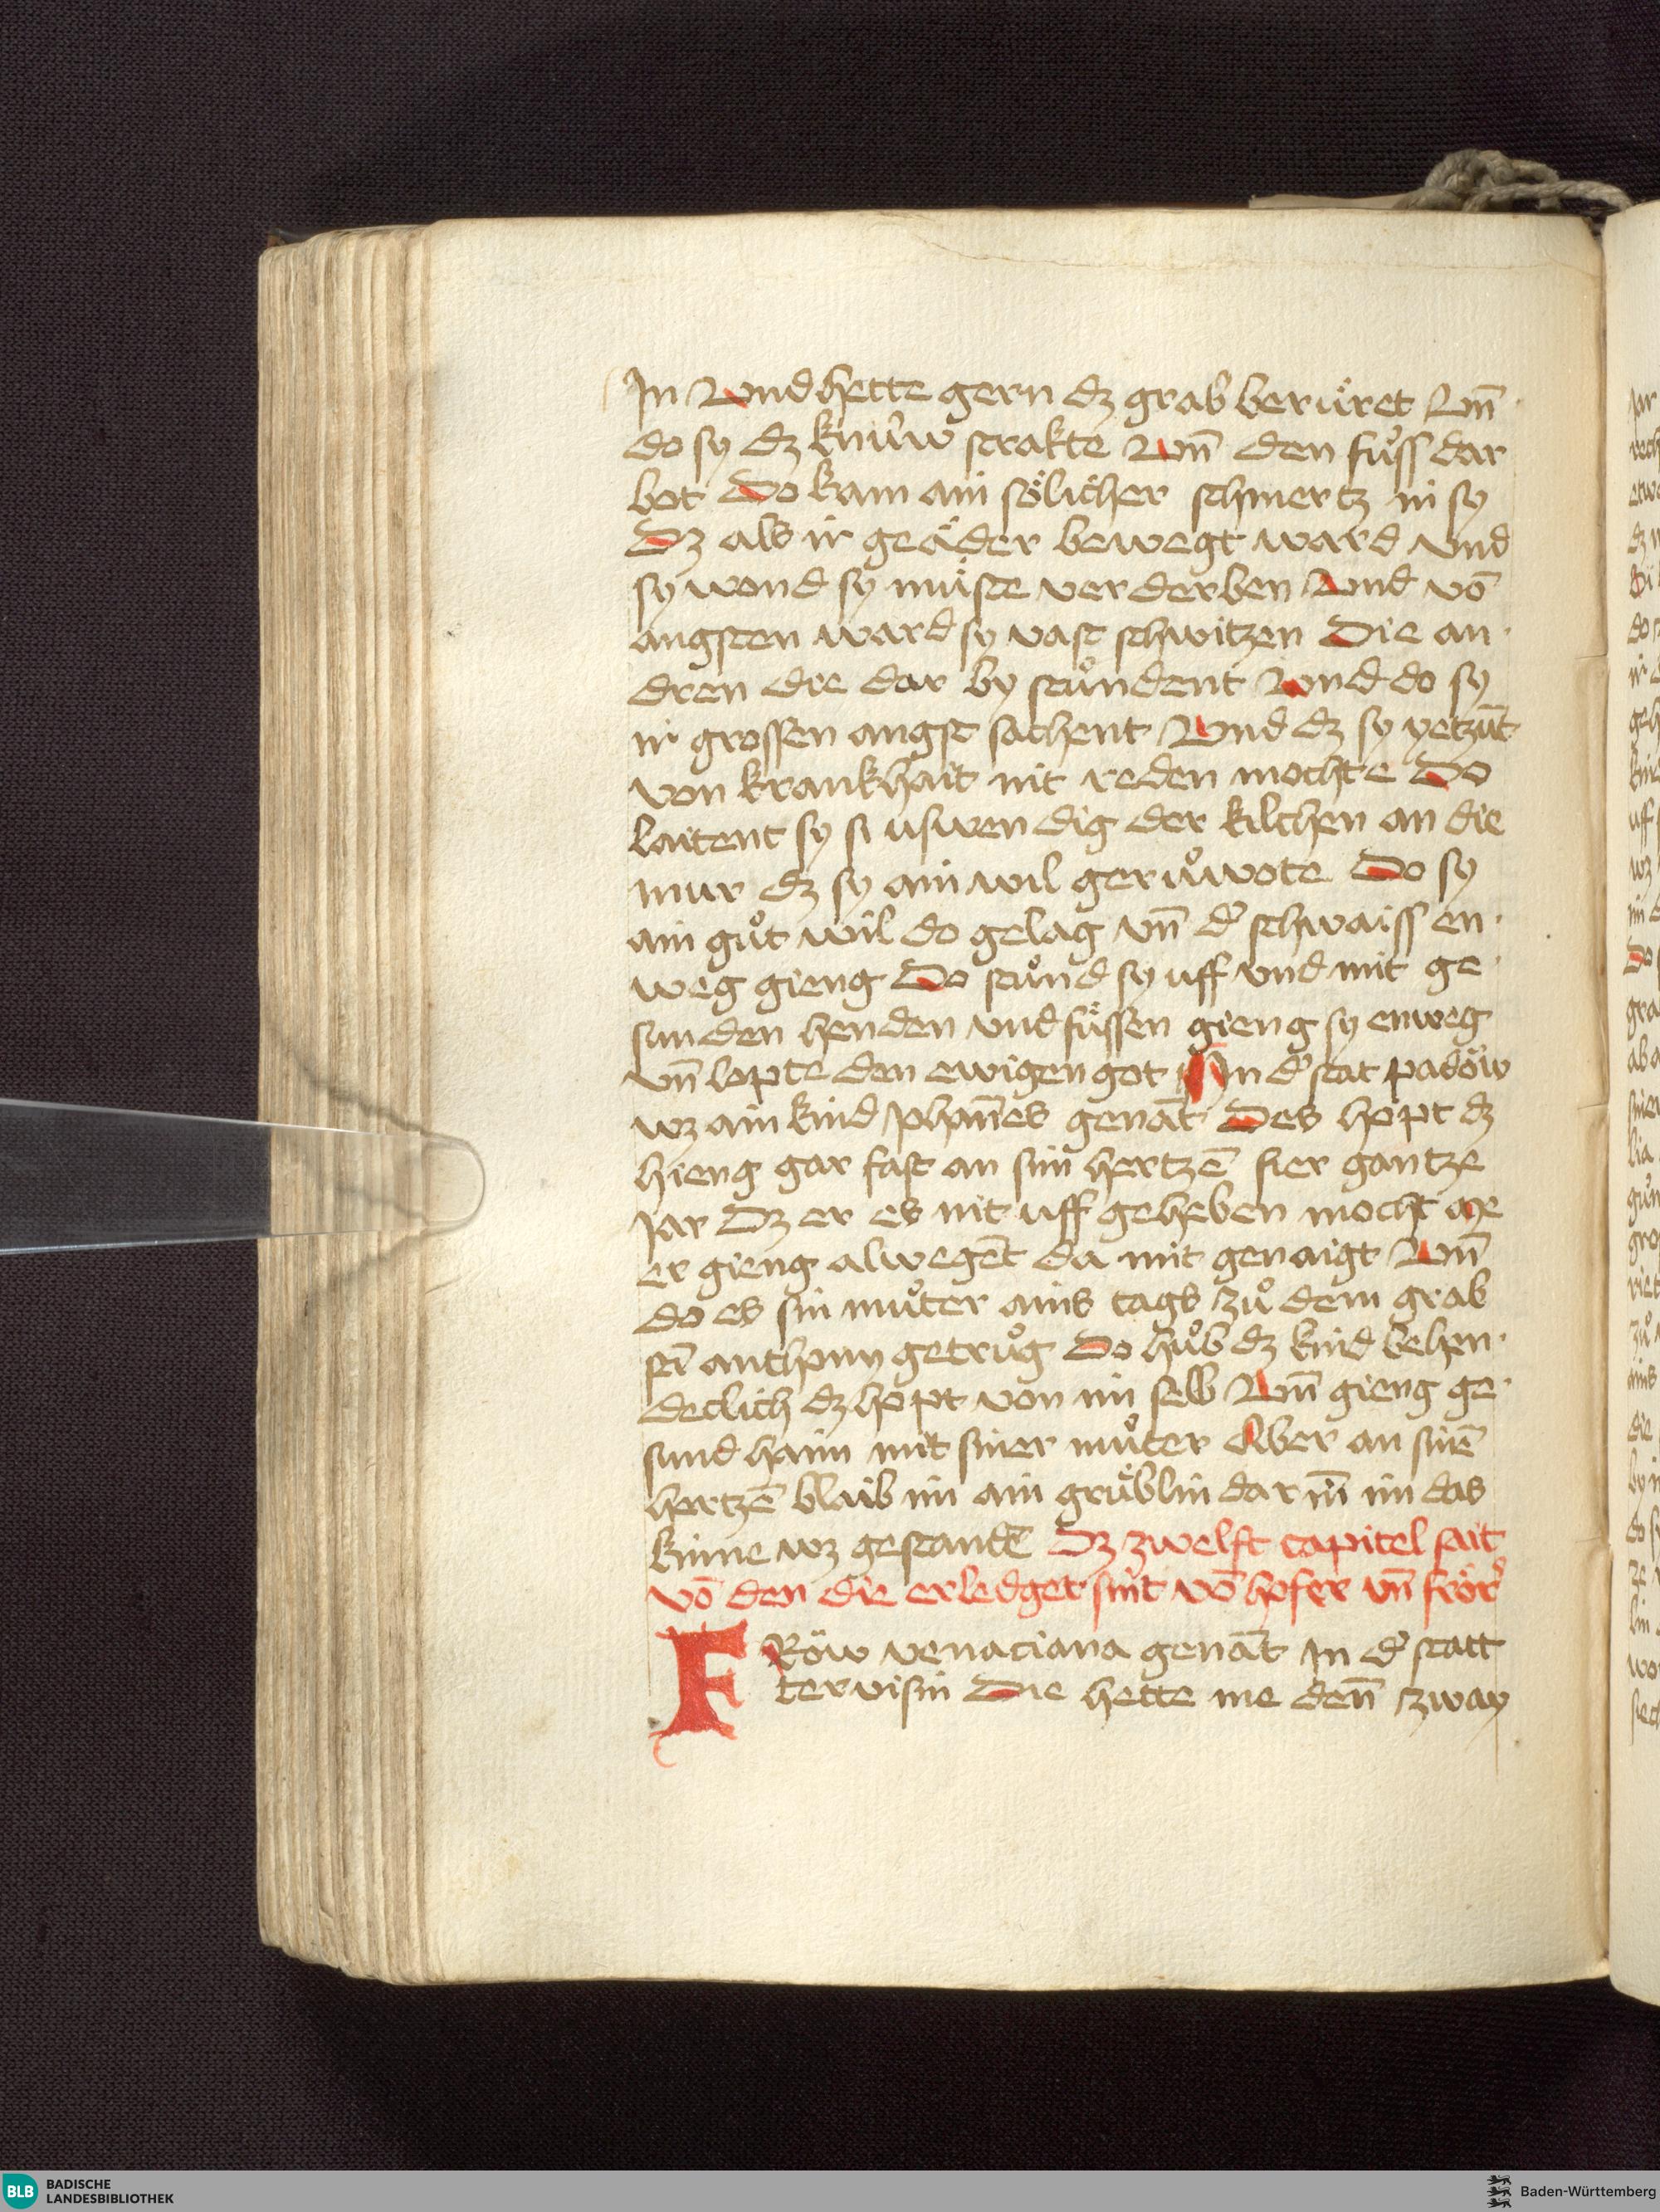 In Vnd hette gern dz grab beruͤret Vn̄
do sy dz knuw strakte Vn̄ den fuͦss dar
bot Do kam ain soͤlicher schmertz in sy
Dz als ir geaͤder bewegt ward vnd
sy wond sy muͤste verderben Vnd vō
angsten ward sy vast schwitzen Die an
dren die dar by stuͦndent Vnd do sy
ir grossen angst sachent Vnd dz sy yetzūt
von krankhait nit reden mochte Do
laitent sy si uswendig der kilchen an die
mur dz sy ain wil geruͦwote Do sy
ain guͦt wil do gelag vn̄ d' schwaiss en
weg gieng Do stuͦnd sy uff vnd mit ge
sunden henden vnd fuͤssen gieng sy enweg
vn̄ lopte den ewigen got In d' stat padöw
wz ain kind Johan̄es genāt Des hopt dz
hieng gar fast an sim hertzē fier gantze
Jar Dz er es nit uff geheben mocht me
er gieng alwegēt da mit genaigt Vn̄
do es sin muͦter ains tags zuͦ dem grab
sēi anthony getruͦg Do huͦb dz kind behen
declich dz hopt von im selb Vn̄ gieng ge
sund haim mit siner muͦter Aber an sinē
hertzē blaib im ain gruͤblin dar in̄ im das
kinne wz gestandē Dz zwelft capitel sait
vō den die erledget sint vō hofer vn̄ frör'
FRöw venaciana genāt In d' statt
tervisin Die hette me den̄ zway
BLB BADISCHE
LANDESBIBLIOTHEK
Baden-Württemberg